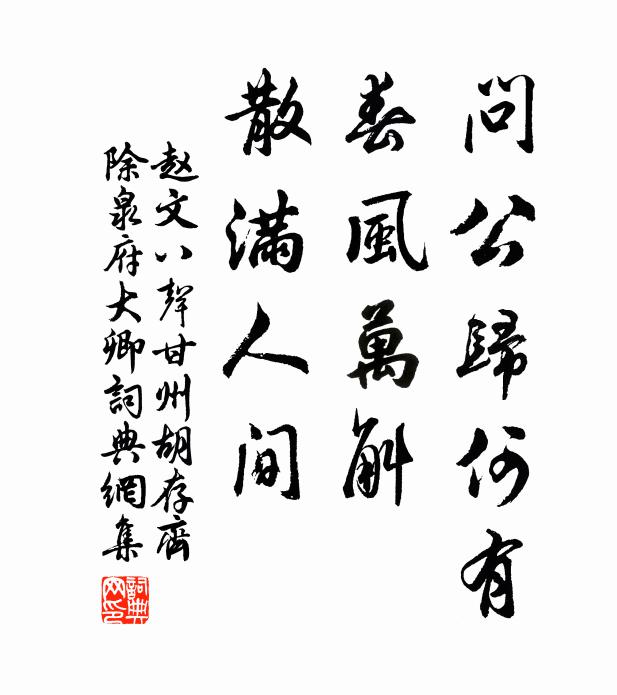 問公歸何有
春風萬斛
散滿人间
赵文八聲甘州胡存齊
除泉府大卿詞典網集
詞典网印